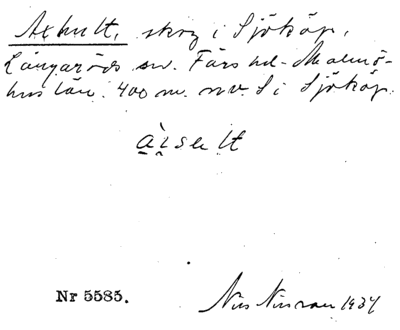 Axhult, skog i Sjököp,
Långaröds sn. Färs hd. Malmö-
hus län. 400 m. nv. S i Sjököp.
Nr 5585.
Nils Nilsson 1937